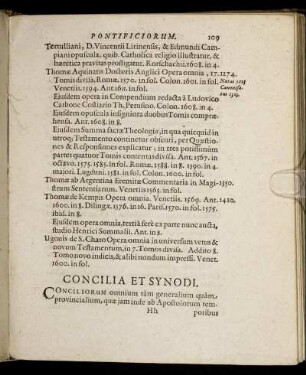 PONTIFICIORUM. 109
Tertulliani, D. Vincentii Lirinensis, & Edmundi Cam-
piani opuscula, quib. Catholica religio illustratur, &
hæretica pravitas profligatur. Rorschachii, 1608. in 4.
Thomæ Aquinatis Doctoris Anglici Opera omnia, 17. 1274.
Tomis distīcta, Romæ. 1570. in fol. Colon. 1601. in fol.
Venetiis. 1594. Ant. 1611. in fol.
Eiusdem opera in Compendium redacta à Ludovico
Carbone Costiario Th. Perusino. Colon. 1608. in 8.
Eiusdem opuscula insigniora duobus Tomis compre-
hensa. Ant. 1608. in 8.
Eiusdem Summa sacræ Theologiæ, in qua quicquid in
utroq; Testamento continetur obscuri, per Quæstio-
nes & Responsiones explicatur, in tres potissimum
partes quatuor Tomis contentas divisa. Ant. 1567. in
octavo. 1575. 1585. in fol. Romæ. 1588. in 8. 1590. in 4.
maiori. Lugduni. 1581. in fol. Colon. 1600. in fol.
Thomæ ab Argentina Eremitæ Commentaria in Magi- 1350.
strum Sententiarum. Venetiis 1565. in fol.
Thomæ de Kempis Opera omnia. Venetiis. 1569. Ant. 1410.
1600. in 8. Dilingæ. 1576. in 16. Parisf. 1570. in fol. 1575.
ibid. in 8.
Ejusdem opera omnia, tertiâ ferè ex parte nunc aucta,
studio Henrici Sommalii. Ant. in 8.
Ugonis de S. Charo Opera omnia in universum vetus &
novum Testamentum, in 7. Tomos divisa. Addito 8.
Tomo novo indicis, & alibi nondum impressi. Venet.
1600. in fol.
CONCILIA ET SYNODI.
CONCILIORUM omnium tàm generalium quàm,
provincialium, quæ jam inde ab Apostolorum tem-
Hh poribus